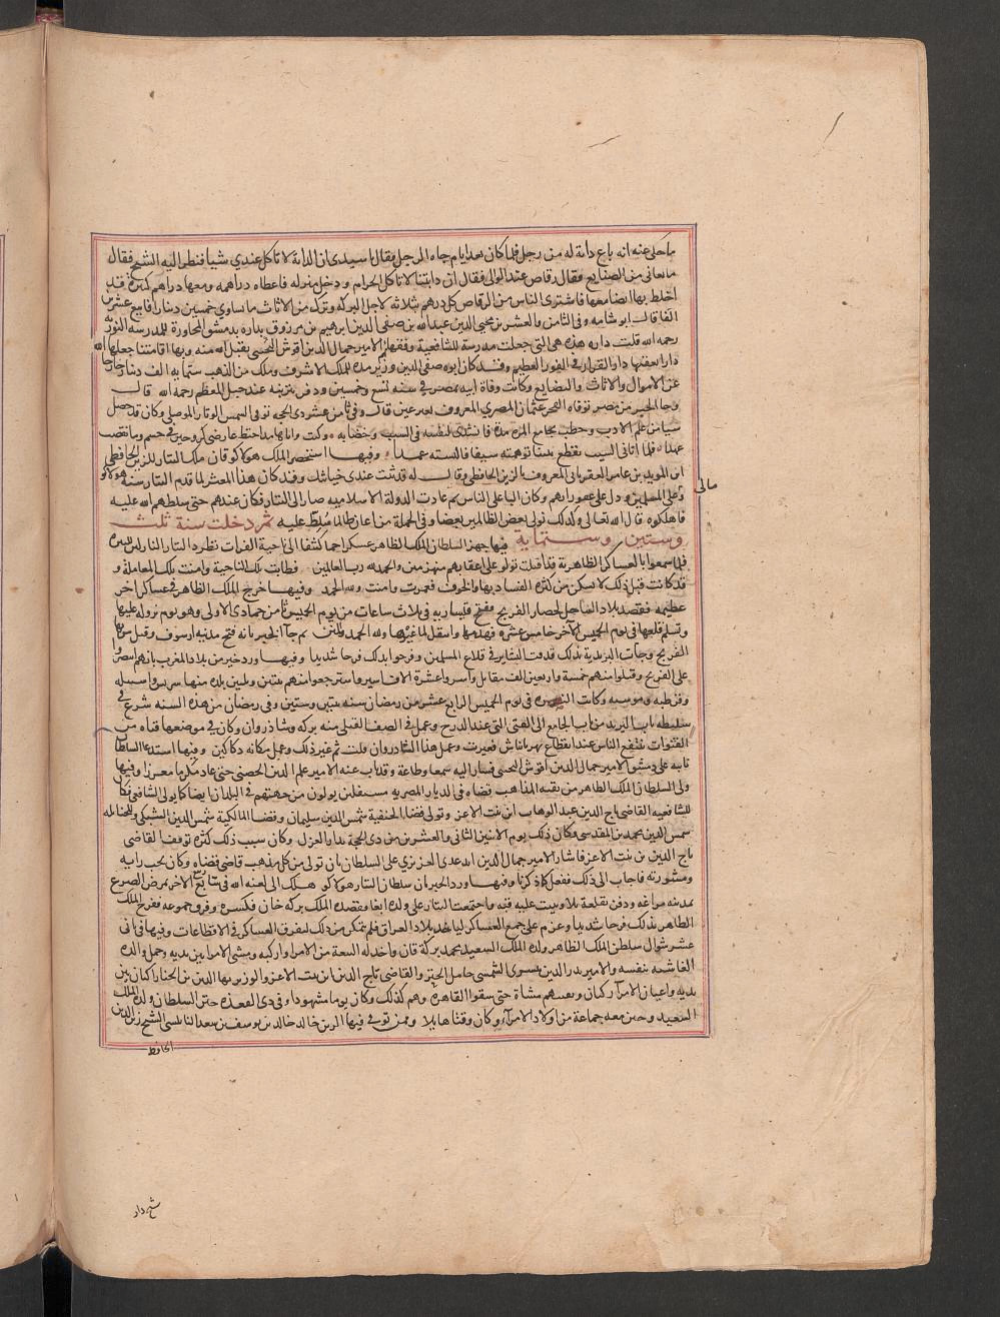 ما حكى عنه انه باع دابة له من رجل فلما كان بعد ايام جاه الرجل فقال يا سيدى ان الدابة لا تاكل عندي شيا فنظر اليه الشيخ فقال
ما تعانى من الصنايع فقال رقاص عند الوالى فقال ان دابتنا لا تاكل الحرام ودخل منزله فاعطاه دراهمه ومعها دراهم كثيرة قد
اختلطت بها فاشترى الناس من الرقاص كل درهم بثلاثه لاجل البركه وترك من الاثاث ما يساوي خمسين دينارا فابيع بعشرين
الفا قال ابو شامه وفى الثامن والعشرين محيى الدين عبد الله بن صفى الدين ابرهيم بن مرزوق بداره بدمشق المجاورة للمدرسه النوريه
رحمه الله قلت داره هذه هى التى جعلت مدرسة للشافعية وقفها الامير جمال الدين اقوش النجيبى تقبل الله منه وبها اقامتنا جعلها الله
دارا تعقبها دار القرار فى الفوز العظيم وقد كان ابوه صفى الدين وزير مدة للملك الاشرف وملك من الذهب ستمايه الف دينار خارجا
عن الاموال والاثاث والبضايع وكانت وفاة ابيه بمصر فى سنه تسع وخمسين ودفن بتربته عند جبل المقطم رحمه الله قال
وجا الخبر من مصر بوفاه الفخر عثمان المصري المعروف بعين غين قال وفى ثامن عشر ذى الحجه توفى الشمس الوتار الموصلى وكان قد حصل
شيا من علم الادب وخطب بجامع المزه مدة فانشدنى لنفسه فى الشيب وخضابه وكنت واياها مذ اختط عارضى كروحين فى جسم وما نقضت
عهدا فلما اتانى الشيب يقطع بيننا توهمته سيفا فالبسته غمدا وفيها استحضر الملك هولاكو قان ملك التتار للزين الحافظى
ابن المويد بن عامر العقربانى المعروف بالزين الحافظى وقال له قد ثبت عندى خيانتك وقد كان هذا المعثر لما قدم التتار سنه هولاكو
مالى
دل على عوراتهم وكان البا على الناس ثم عادت الدولة الاسلاميه صار الى التتار فكان عندهم حتى سلطهم الله عليه
فاهلكوه قال الله تعالى وكذلك نولى بعض الظالمين بعضا وفى الجملة من اعان ظالما سُلِّط عليه ثم دخلت سنة ثلث
وستين وستماية فيها جهز السلطان الملك الظاهر عسكرا جما كثفا الى ناحية الفرات لطرد التتار النازلين بالبيره
فلما سمعوا بالعساكر الظاهرية قد اقبلت تولو على اعقابهم منهزمين والحمد لله رب العالمين فطابت تلك الناحية وامنت تلك المعاملة و
قد كانت قبل ذلك لا تسكن من كثره الفساد بها والخوف فعمرت وامنت ولله الحمد وفيها خرج الملك الظاهر فى عساكر اخر
عظيمه فقصد بلاد الساحل لحصار الفرنج ففتح قيساريه فى ثلاث ساعات من يوم الخميس ثامن جمادى الاولى وهو يوم نزوله عليها
وتسلم قلعتها فى يوم الخميس الاخر خامس عشره فهدمها وانتقل لما غيرها ولله الحمد والمنن ثم جآ الخبر بانه فتح مدينه ارسوف وقتل من بها
الفرنج وجات البريدية بذلك فدقت البشاير فى قلاع المسلمين وفرحوا بذلك فرحا شديدا وفيها ورد خبر من بلاد المغرب بانهم انتصروا
على الفرنج وقتلوا منهم خمسة واربعين الف مقاتل واسروا عشرة الاف اسير واسترجعوا منهم ثنتين وثلثين بلده منها سريس واشبيليه
وقرطبه ومرسيه وكانت النصره فى يوم الخميس الرابع عشر من رمضان سنه ثنتين وستين وفى رمضان من هذه السنه شرع فى
تبليطه باب البريد من باب الجامع الى القنى التى عند الدرج وعمل فى الصف القبلى منه بركه وشاذروان وكان فى موضعها قناه من
القنوات ينتفع الناس عند انقطاع نهر باناس فغيرت وعمل هذا الشاذروان قلت ثم غير ذلك وعمل مكانه دكاكين وفيها استدعا السلطان
نايبه على دمشق الامير جمال الدين اقوش النجيبى فسار اليه سمعا وطاعة وقد ناب عنه الامير علم الدين الحصنى حتى عاد مكرما معززا وفيها
ولى السلطان الملك الظاهر من بقيه المذاهب قضاه فى الديار المصريه مستقلين يولون من جهتهم فى البلدان ايضا كما يولى الشافعى فكان
للشافعيه القاضى تاج الدين عبد الوهاب ابن بنت الاعز وتولى قضا الحنفية شمس الدين سليمان وقضا المالكية شمس الدين السبكى وللحنابله
شمس الدين محمد بن المقدسى وكان ذلك يوم الاثنين الثانى والعشرين من ذى الحجة بدار العدل وكان سبب ذلك كثرة توقف القاضى
تاج الدين بن بنت الاعز فاشار الامير جمال الدين ايدغدى العزيزي على السلطان بان تولى من كل مذهب قاضى قضاه وكان يحب رايه
ومشورته فاجاب الى ذلك ففعل كما ذكرنا وفيها ورد الخبر بان سلطان التتار هولاكو هلك الى لعنه الله فى سابع الاخر بمرض الصرع
بمدينه مراغه ودفن بقلعة تلا وبنيت عليه قبه واجتمعت التتار على ولده ابغا وقصده الملك بركه خان فكسره وفرق جموعه ففرح الملك
الظاهر بذلك فرحا شديدا وعزم على جمع العساكر لياخذ بلاد العراق فلم يتمكن من ذلك لتفرق العساكر فى الاقطاعات وفيها فى ثانى
عشر شوال سلطن الملك الظاهر ولده الملك السعيد محمد بركة قان واخذ له البيعة من الامرا واركبه ومشى الامرا بين يديه وحمل والده
الغاشيه بنفسه والامير بدر الدين بيسرى الشمسى حامل الجتر والقاضى تاج الدين ابن بنت الاعز والوزير بها الدين بن الحنا راكبان بين
يديه واعيان الامرا ركبان وبعضهم مشاة حتى شقوا القاهرة وهم كذلك وكان يوما مشهودا وفى ذى القعده ختن السلطان ولده الملك
السعيد وختن معه جماعة من اولاد الامرآ وكان وقتا هايلا وممن توفى فيها الزين خالد خالد بن يوسف بن سعد النابلسى الشيخ زين الدين
الحافظ
شيخ دار